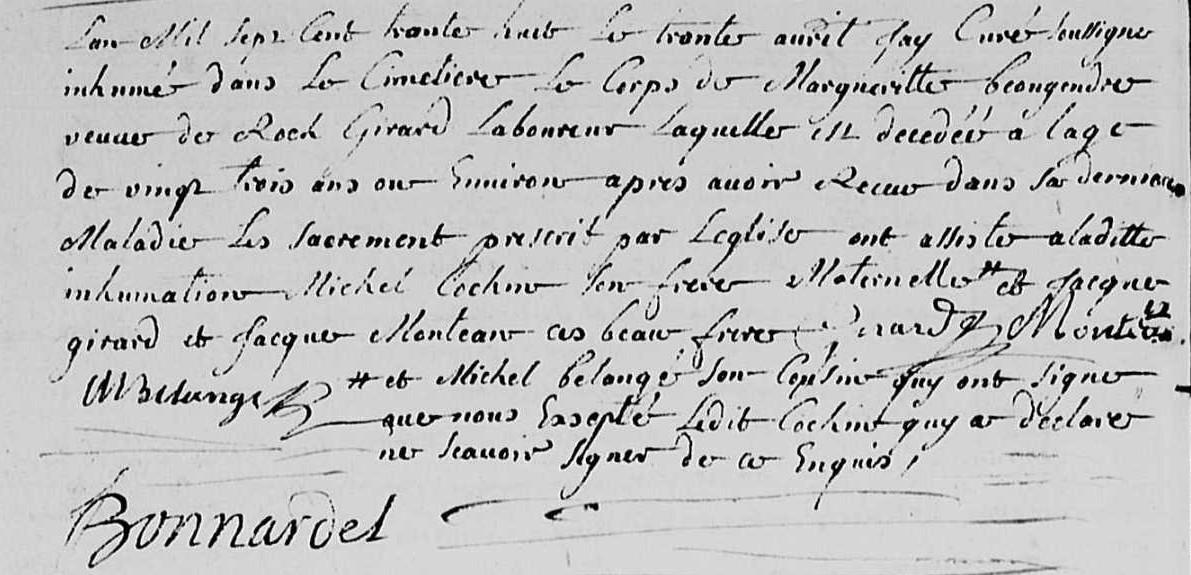 Lan Mil sept Cent trante huit Le trante avril Jay Curé soussigne
inhumé dans Le Cimetiere Le Corps de Margueritte
veuve de Roch Girard Laboureur Laquelle est decedéé a lage
de vingt trois ans ou Environ apres avoir Recue dans sa derniere
Maladie Les sacrement prescrit par Leglise ont assiste a laditte
inhumation Michel Cochin son frere Maternelle # et Jacque
girard et Jacque Monteau ces beau frere Girard J Monteau
MBelange # et Michel belangé son Cousin quy ont signe
que nous Excepté Ledit Cochin quy a déclaré
ne scavoir signer de ce Enquis /
Bonnardel